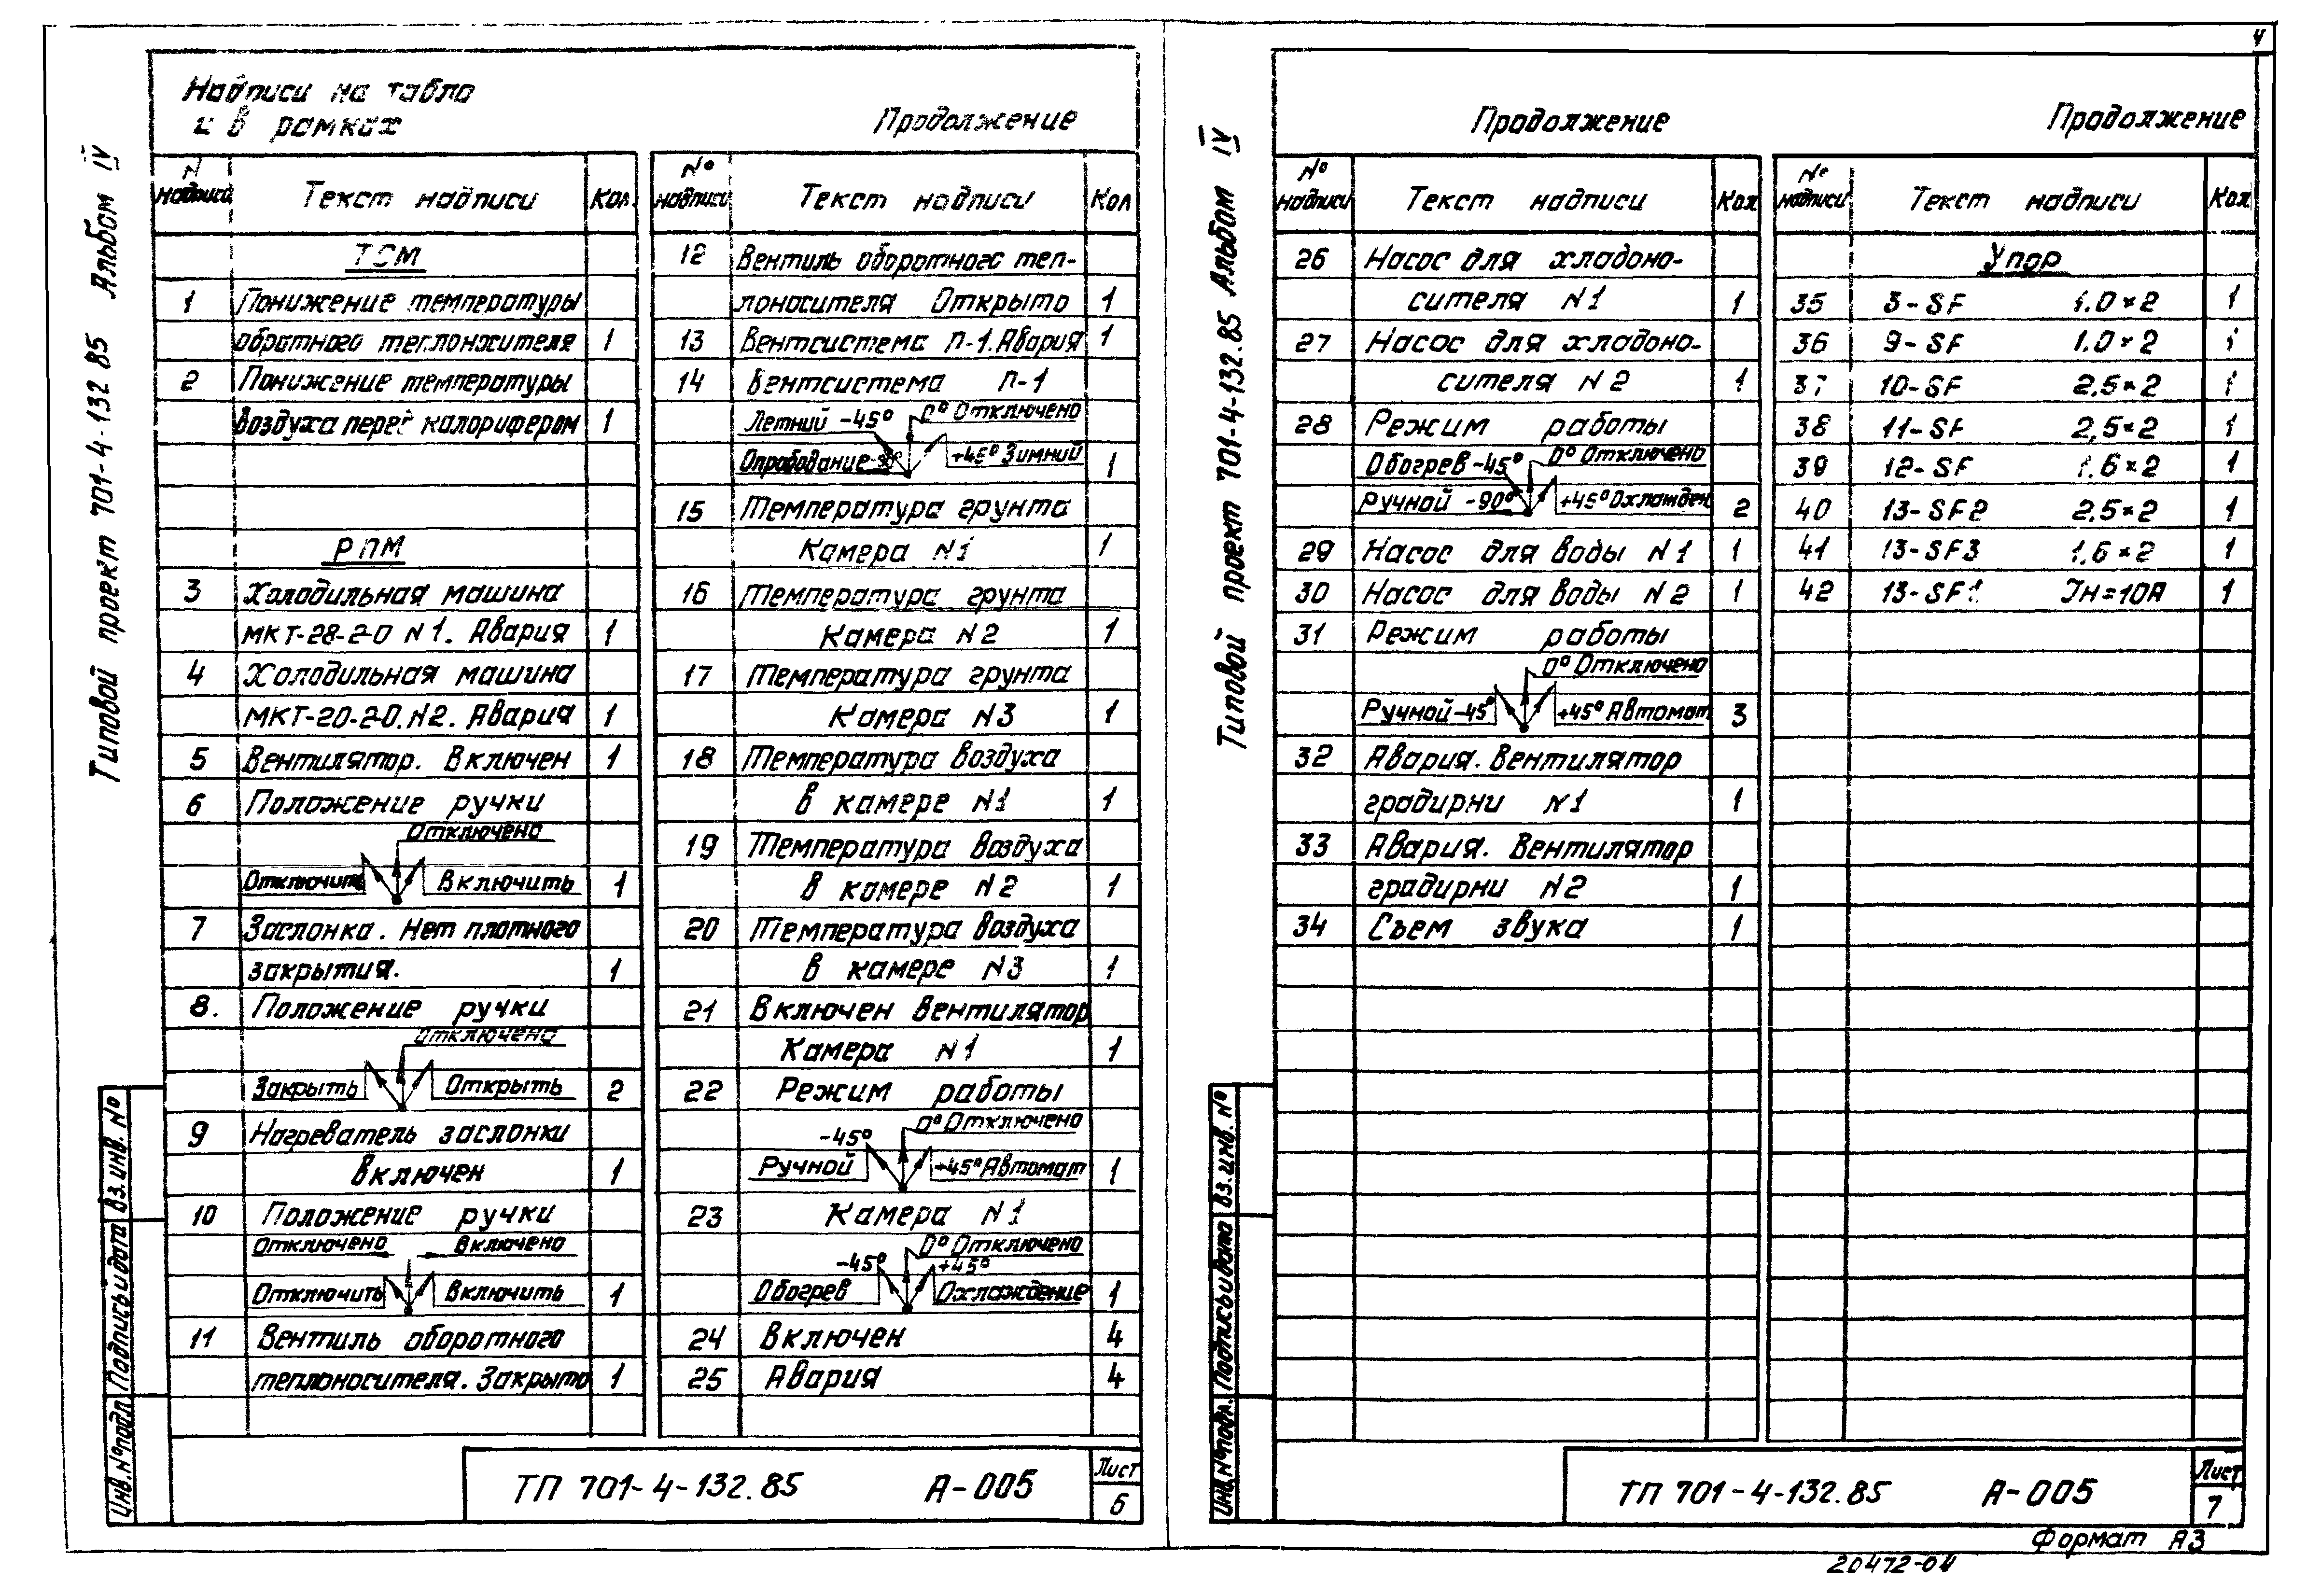 4
Надписи на табло
и в рамках
Продолжение
N надписи Текст надписи Кол.
ТСМ
1 Понижение температуры
обратного теплоносителя 1
2 Понижение температуры
воздуха перед калорифером 1
РПМ
3 Холодильная машина
МКТ-28-2-0 N1. Авария 1
4 Холодильная машина
МКТ-20-2-0. N2. Авария 1
5 Вентилятор. Включен 1
6 Положение ручки
Отключено
Отключить Включить 1
7 Заслонка. Нет плотного
закрытия. 1
8. Положение ручки
Отключено
Закрыть Открыть 2
9 Нагреватель заслонки
включен 1
10 Положение ручки
Отключено Включено
Отключить Включить 1
11 Вентиль оборотного
теплоносителя. Закрыто 1
№ надписи Текст надписи Кол
12 Вентиль оборотного теп-
лоносителя Открыто 1
13 Вентсистема П-1. Авария 1
14 Вентсистема П-1
Летний -45° 0° Отключено
Опробование +45° Зимний 1
15 Температура грунта
Камера N1 1
16 Температура грунта
Камера N2 1
17 Температура грунта
Камера N3 1
18 Температура воздуха
в камере N1 1
19 Температура воздуха
в камере N2 1
20 Температура воздуха
в камере N3 1
21 Включен вентилятор
Камера N1 1
22 Режим работы
-45° 0° Отключено
Ручной +45° Автомат 1
23 Камера N1
-45° 0° Отключено
+45°
Обогрев Охлаждение 1
24 Включен 4
25 Авария 4
ТП 701-4-132.85 А-005
Лист
6
Типовой проект 701-4-132 85 Альбом IV
Инв. № подл. Подпись и дата Вз. инв. №
Продолжение
Продолжение
№ надписи Текст надписи Кол
26 Насос для хладоно-
сителя N1 1
27 Насос для хладоно-
сителя N2 1
28 Режим работы
Обогрев -45° 0° Отключено
Ручной -90° +45° Охлажден 2
29 Насос для воды N1 1
30 Насос для воды N2 1
31 Режим работы
0° Отключено
Ручной -45° +45° Автомат 3
32 Авария. Вентилятор
градирни N1 1
33 Авария. Вентилятор
градирни N2 1
34 Съем звука 1
№ надписи Текст надписи Кол
Упор
35 3-SF 1.0×2 1
36 9-SF 1.0×2 1
37 10-SF 2.5×2 1
38 11-SF 2,5×2 1
39 12-SF 1.6×2 1
40 13-SF2 2.5×2 1
41 13-SF3 1,6×2 1
42 13-SF1 Iн=10А 1
ТП 701-4-132.85 А-005
Лист
7
Типовой проект 701-4-132.85 Альбом IV
Инв. № подл. Подпись и дата Вз. инв. №
Формат А3
20472-04